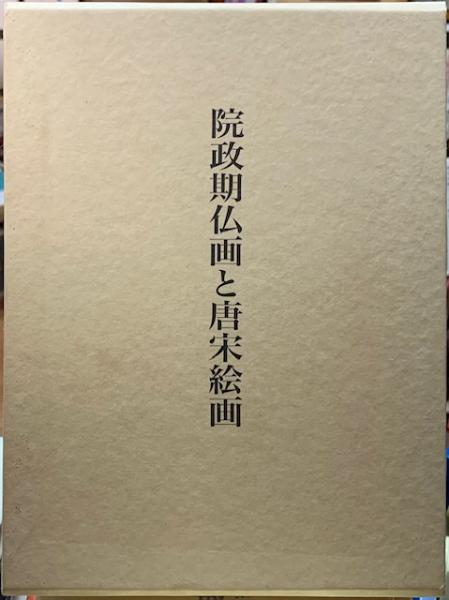 院政期仏画と唐宋絵画